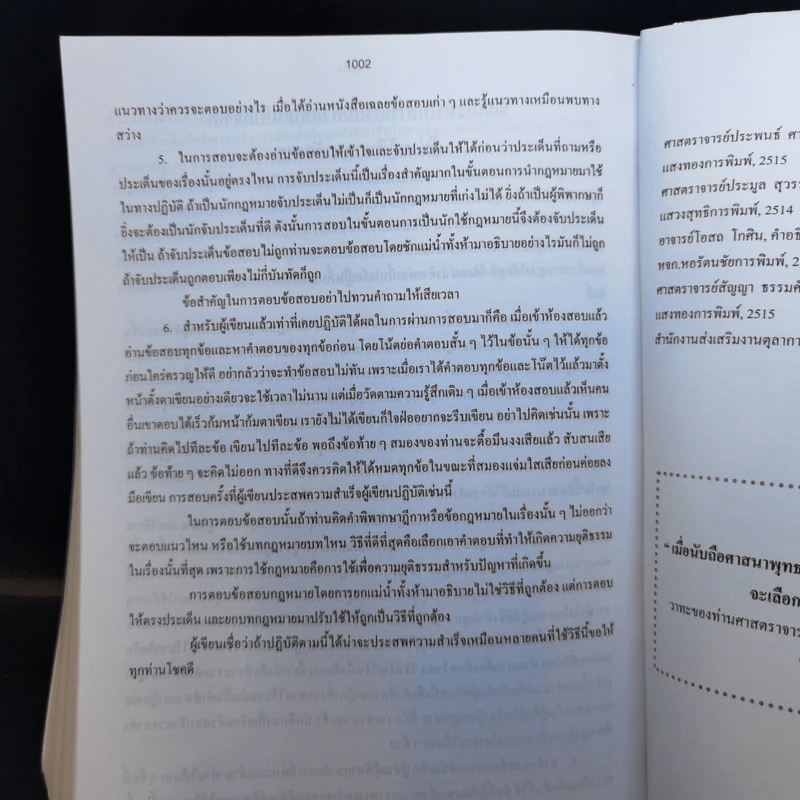 1002
แนวทางว่าควรจะตอบอย่างไร เมื่อได้อ่านหนังสือเฉลยข้อสอบเก่า ๆ และรู้แนวทางเหมือนพบทาง
สว่าง
5. ในการสอบจะต้องอ่านข้อสอบให้เข้าใจและจับประเด็นให้ได้ก่อนว่าประเด็นที่ถามหรือ
ประเด็นของเรื่องนั้นอยู่ตรงไหน การจับประเด็นนี้เป็นเรื่องสำคัญมากในขั้นตอนการนำกฎหมายมาใช้
ในทางปฏิบัติ ถ้าเป็นนักกฎหมายจับประเด็นไม่เป็นก็เป็นนักกฎหมายที่เก่งไม่ได้ ยิ่งถ้าเป็นผู้พิพากษาก็
ยิ่งจะต้องเป็นนักจับประเด็นที่ดี ดังนั้นการสอบในขั้นตอนการเป็นนักใช้กฎหมายนี้จึงต้องจับประเด็น
ให้เป็น ถ้าจับประเด็นข้อสอบไม่ถูกท่านจะตอบข้อสอบโดยชักแม่น้ำทั้งห้ามาอธิบายอย่างไรมันก็ไม่ถูก
ถ้าจับประเด็นถูกตอบเพียงไม่กี่บันทัดก็ถูก
ข้อสำคัญในการตอบข้อสอบอย่าไปทวนคำถามให้เสียเวลา
6. สำหรับผู้เขียนแล้วเท่าที่เคยปฏิบัติได้ผลในการผ่านการสอบมาก็คือ เมื่อเข้าห้องสอบแล้ว
อ่านข้อสอบทุกข้อและหาคำตอบของทุกข้อก่อน โดยโน้ตย่อคำตอบสั้น ๆ ไว้ในข้อนั้น ๆ ให้ได้ทุกข้อ
ก่อนใคร่ครวญให้ดี อย่ากลัวว่าจะทำข้อสอบไม่ทัน เพราะเมื่อเราได้คำตอบทุกข้อและโน๊ตไว้แล้วมาตั้ง
หน้าตั้งตาเขียนอย่างเดียวจะใช้เวลาไม่นาน แต่เมื่อวัดตามความรู้สึกเดิม ๆ เมื่อเข้าห้องสอบแล้วเห็นคน
อื่นเขาตอบได้เร็วก้มหน้าก้มตาเขียน เรายังไม่ได้เขียนก็ใจฝ่ออยากจะรีบเขียน อย่าไปคิดเช่นนั้น เพราะ
ถ้าท่านคิดไปทีละข้อ เขียนไปทีละข้อ พอถึงข้อท้าย ๆ สมองของท่านจะตื้อมึนงงเสียแล้ว สับสนเสีย
แล้ว ข้อท้าย ๆ จะคิดไม่ออก ทางที่ดีจึงควรคิดให้ได้หมดทุกข้อในขณะที่สมองแจ่มใสเสียก่อนค่อยลง
มือเขียน การสอบครั้งที่ผู้เขียนประสพความสำเร็จผู้เขียนปฏิบัติเช่นนี้
ในการตอบข้อสอบนั้นถ้าท่านคิดคำพิพากษาฎีกาหรือข้อกฎหมายในเรื่องนั้น ๆ ไม่ออกว่า
จะตอบแนวไหน หรือใช้บทกฎหมายบทไหน วิธีที่ดีที่สุดคือเลือกเอาคำตอบที่ทำให้เกิดความยุติธรรม
ในเรื่องนั้นที่สุด เพราะการใช้กฎหมายคือการใช้เพื่อความยุติธรรมสำหรับปัญหาที่เกิดขึ้น
การตอบข้อสอบกฎหมายโดยการยกแม่น้ำทั้งห้ามาอธิบายไม่ใช่วิธีที่ถูกต้อง แต่การตอบ
ให้ตรงประเด็น และยกบทกฎหมายมาปรับใช้ให้ถูกเป็นวิธีที่ถูกต้อง
ผู้เขียนเชื่อว่าถ้าปฏิบัติตามนี้ได้น่าจะประสพความสำเร็จเหมือนหลายคนที่ใช้วิธีนี้ขอให้
ทุกท่านโชคดี
ศาสตราจารย์ประพนธ์ ศา
แสงทองการพิมพ์, 2515
ศาสตราจารย์ประมูล สุวรร
แสวงสุทธิการพิมพ์, 2514
อาจารย์โอสถ โกศิน, คำอธิ
หจก.หอรัตนชัยการพิมพ์, 2
ศาสตราจารย์สัญญา ธรรมศั
แสงทองการพิมพ์, 2515
สำนักงานส่งเสริมงานตุลากา
“เมื่อนับถือศาสนาพุทธ
จะเลือก
วาทะของท่านศาสตราจาร